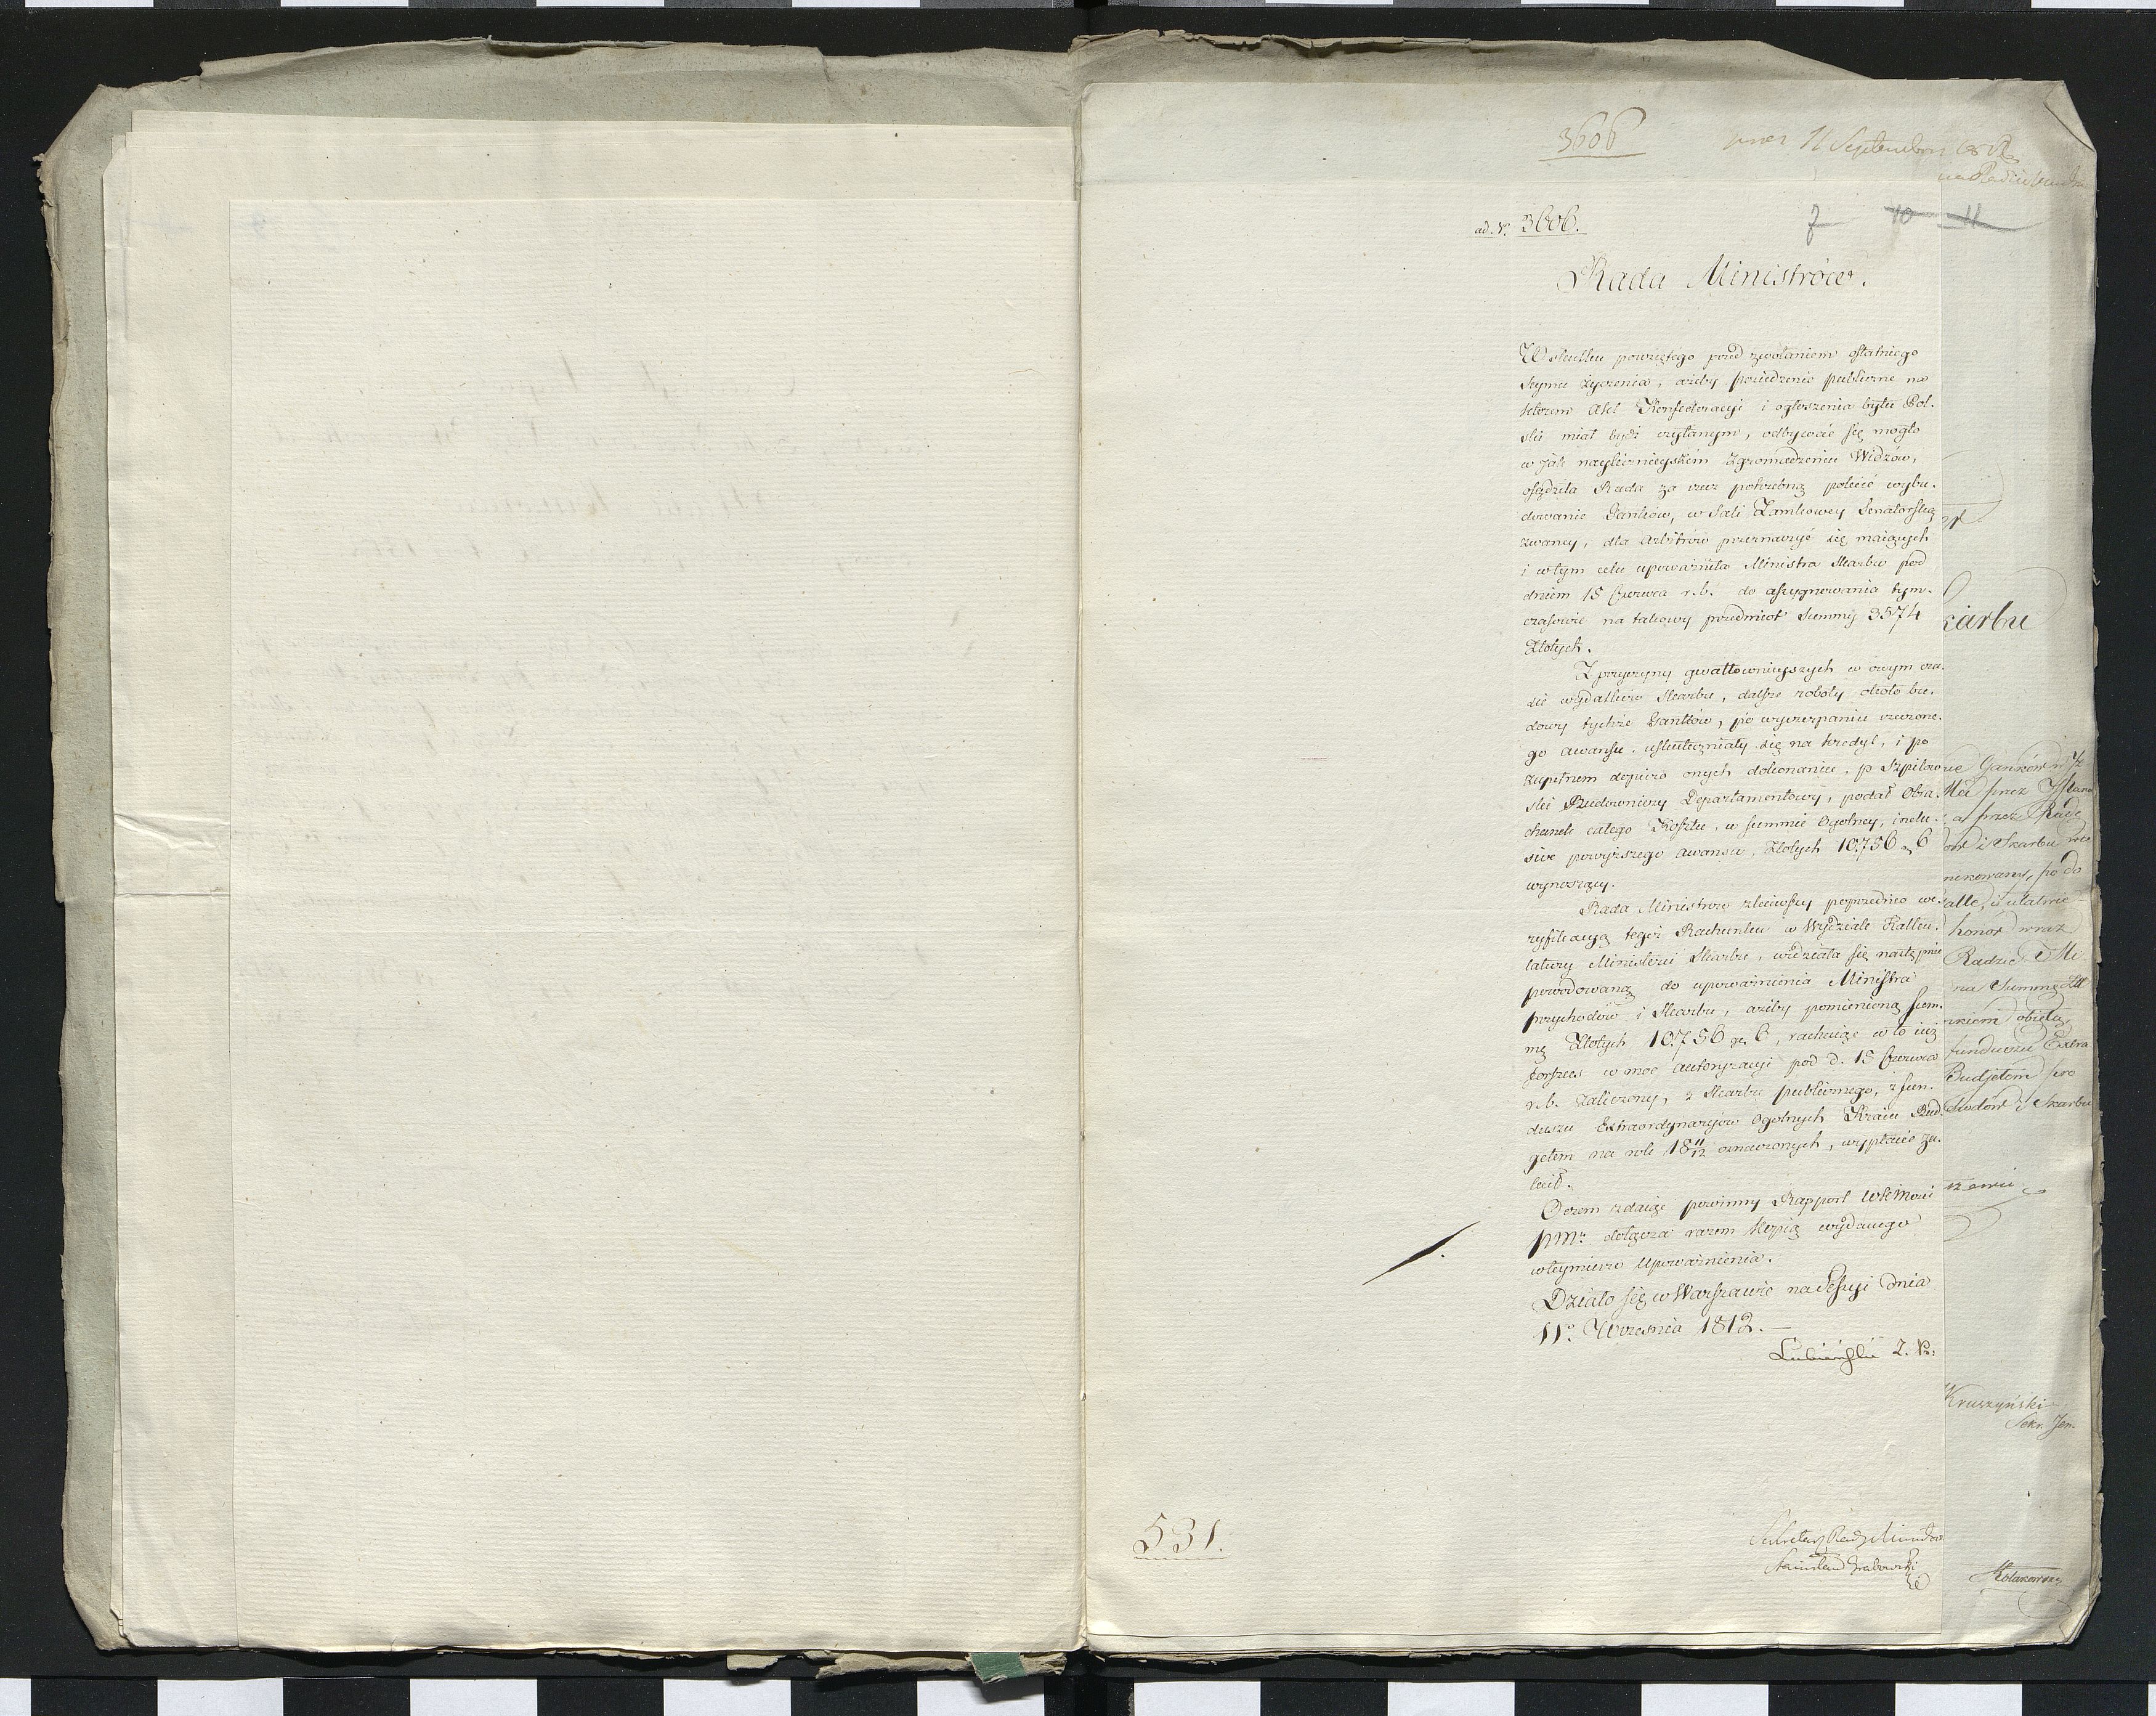 3606
11 Septembris
ad. N. 3606.
7 10 11
Rada Ministrów.
W skutku powziętego przed zwołaniem ostatniego
Seymu życzenia, ażeby posiedzenie publiczne na
którem Akt Konfederacyi i ogłoszenia bytu Pol-
ski miał bydź czytanym, odbywać się mogło
w jak naylicznieyszém Zgromadzeniu Widzów,
osądziła Rada za rzecz potrzebną polecić wybu-
dowanie Ganków, w Sali Zamkowey Senatorską
zwaney, dla Arbitrów przeznaczyć się maiących
i w tym celu upoważniła Ministra Skarbu pod
dniem 15 Czerwca r.b. do assygnowania tym-
czasowie na takowy przedmiot Summy 3574
Złotych.
Z przyczyny gwałtownieyszych w owym cza-
sie wydatków Skarbu, dalsze roboty około bu-
dowy tychże Ganków, po wyczerpaniu rzeczone-
go awansu, uskuteczniały się na kredyt, i po
zupełnem dopiero onych dokonaniu, p Szpilow-
ski Budowniczy Departamentowy, podał Obra-
chunek całego Kosztu, w summie Ogolney, inclu-
sive powyższego awansu, Złotych 10,756 gr 6
wynoszący.
Rada Ministrów zleciwszy poprzednio we-
ryfikacyą tegoż Rachunku w Wydziale Kalku-
latury Ministerii Skarbu, widziała się następnie
powodowaną do upoważnienia Ministra
przychodów i Skarbu, ażeby pomienioną sum-
mę Złotych 10,756 gr. 6, rachując w to iuż
forszus w moc autoryzacyi pod d. 15 Czerwca
r.b. zaliczony, z Skarbu publicznego, z fun-
duszu Extraordynaryiów Ogolnych Kraiu Bud-
getem na rok 18 11/12 oznaczonych, wypłacić za-
lecił.
O czem zdaiąc powinny Rapport WKMowi
PMu. dołącza razem kopią wydanego
w teymierze Upoważnienia.
Działo się w Warszawie na Sessyi dnia
11o. Września 1812. —
Lubieński Z. P.
531.
Sekretarz Rady Ministrów
Stanisław Grabowski
karbu
Ganków
przez
a przez Radę
i Skarbu
po do
honor wraz
Radzie Mi
na Summę
funduszu Extra
Budjetem
chodów i Skarbu
Kruszyński
Sekr. Jen.